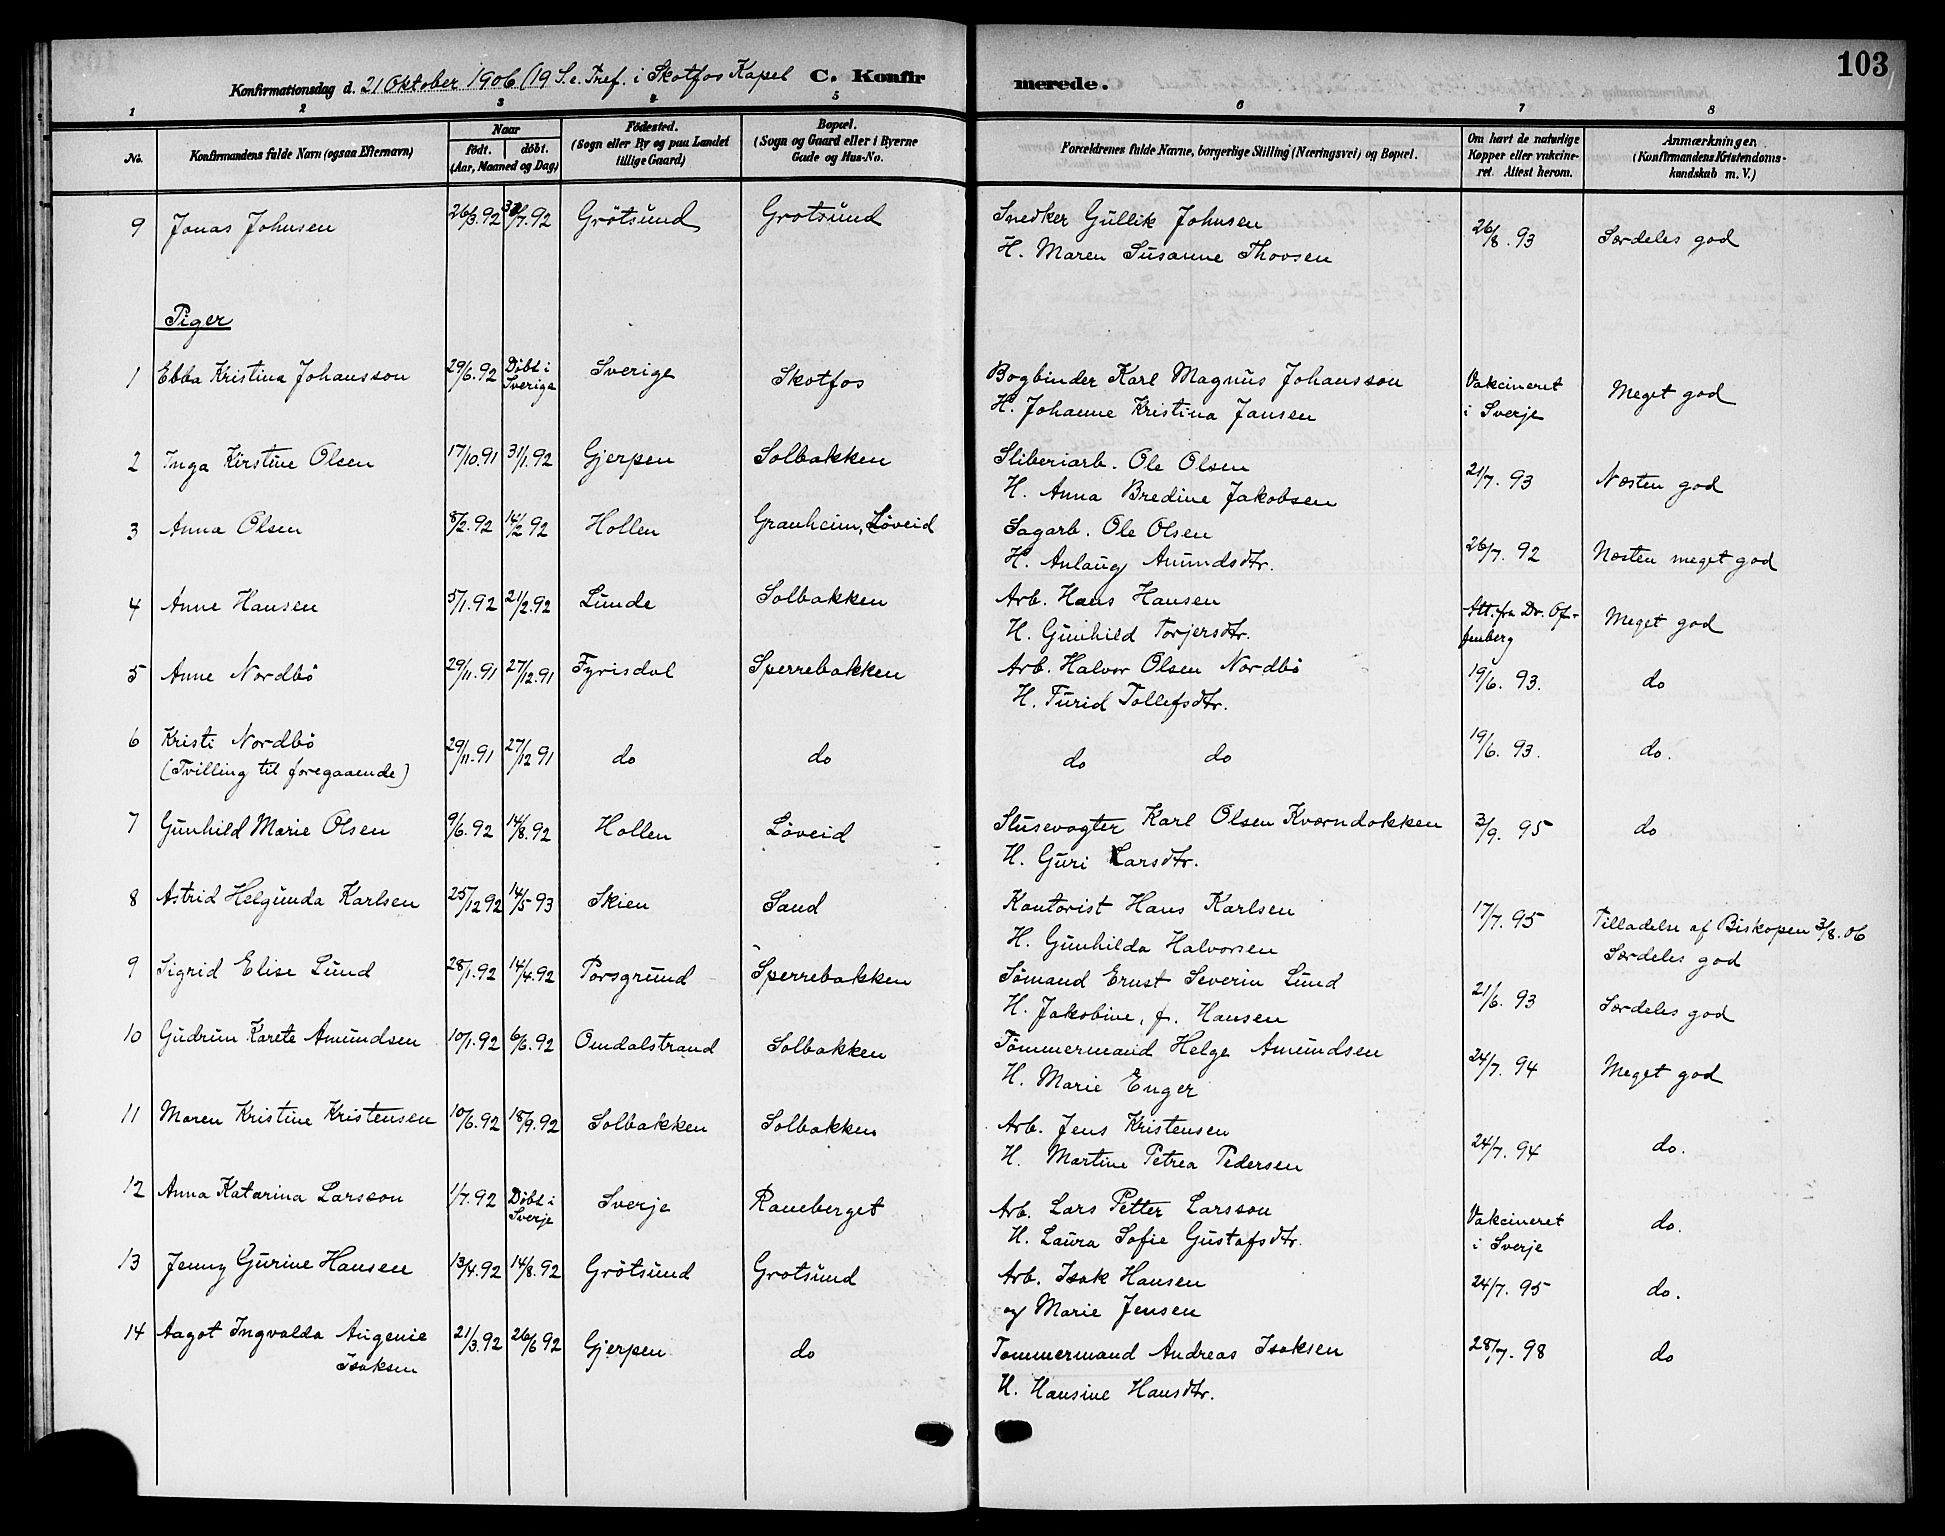 103
Konfirmationsdag d. 21 Oktober 1906 (19 S. e. Tref. i Skotfos Kapel C. Konfirmerede.
1 2 3 4 5 6 7 8
No. Konfirmandens fulde Navn (ogsaa Efternavn) Naar født. døbt. (Aar, Maaned og Dag) Fødested. (Sogn eller By og paa Landet tillige Gaard) Bopæl. (Sogn og Gaard eller i Byerne Gade og Hus-No. Forældrenes fulde Navne, borgerlige Stilling (Næringsvei) og Bopæl. Om havt de naturlige Kopper eller vakcineret. Attest herom. Anmærkninger. (Konfirmandens Kristendomskundskab m. V.)
9 Jonas Johnsen 26/3.92 /7.92 Grötsund Grotsund Snedker Gullik Johnsen 26/8.93 Særdeles god
H. Maren Susanne Thovsen
Piger
1 Ebba Kristina Johansson 29/6.92 Døbt i Sverige Sverige Skotfos Bogbinder Karl Magnus Johansson Vakcineret i Sverje Meget god
H. Johanne Kristina Jansen
2 Inga Kirstine Olsen 17/10.91 31/1.92 Gjerpen Solbakken Sliberiarb. Ole Olsen 21/7.93 Næsten god
H. Anna Bredine Jakobsen
3 Anna Olsen 8/2.92 14/2 92 Hollen Granheim, Løveid Sagarb. Ole Olsen 26/7.92 Næsten meget god
H. Anlaug Amundsdtr.
4 Anne Hansen 5/1.92 21/2.92 Lunde Solbakken Arb. Hans Hansen Att. fra Dr. Offenberg Meget god
H. Gunhild Torjersdtr.
5 Anne Nordbö 29/11.91 27/12.91 Fyrisdal Sperrebakken Arb. Halvor Olsen Nordbö 19/6.93. do
H. Turid Tollefsdtr.
6 Kristi Nordbö 29/11.91 27/12 91 do do do do 19/6.93. do.
(Tvilling til foregaaende)
7 Gunhild Marie Olsen 9/6.92 14/8.92 Hollen Løveid Slusevogter Karl Olsen Kværndokken 3/9.95 do
H. Guri Larsdtr.
8 Astrid Helgunda Karlsen 25/12 92 14/5 93 Skien Sand Kontorist Hans Karlsen 17/7.95 Tilladelse af Biskopen 3/8.06
H. Gunhilda Halvorsen Særdeles god
9 Sigrid Elise Lund 28/1.92 14/4.92 Porsgrund Sperrebakken Sömand Ernst Severin Lund 21/6.93 Særdeles god
H. Jakobine, f. Hansen
10 Gudrun Karete Amundsen 10/1.92 6/6.92 Omdalstrand Solbakken Tömmermand Helge Amundsen 24/7.94 Meget god
H. Marie Enger
11 Maren Kristine Kristensen 10/6.92 18/9.92 Solbakken Solbakken Arb. Jens Kristensen 24/7.94 do.
H. Martine Petrea Pedersen
12 Anna Katarina Larsson 1/7.92 Döbt i Sverje Sverje Raneberget Arb. Lars Petter Larsson Vakcineret i Sverje do.
H. Laura Sofie Gustafsdtr.
13 Jenny Gurine Hansen 13/4.92 14/8.92 Grötsund Grotsund Arb. Isak Hansen 24/7.95 do.
og Marie Jensen
14 Aagot Ingvalda Augenie 21/3.92 26/6 92 Gjerpen do Tommermand Andreas Isaksen 28/7.98 do
Isaksen H. Hansine Hansdtr.